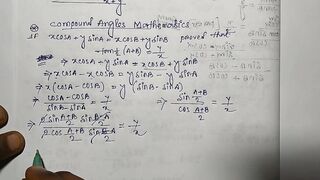 x+y
Compound Angles Mathematics
If xcosA+ysinA = xcosB+ysinB proved that
tan ½ (A+B) = y/x
⇒ xcosA+ysinA = xcosB+ysinB
⇒ xcosA - xcosB = ysinB - ysinA
⇒ x(cosA-cosB) = y(sinB-sinA)
⇒ cosA-cosB / sinB-sinA = y/x
⇒ sin A+B/2 / cos A+B/2 = y/x
⇒ 2 sin A+B/2 sin B-A/2 / 2 cos A+B/2 sin B-A/2 = y/x